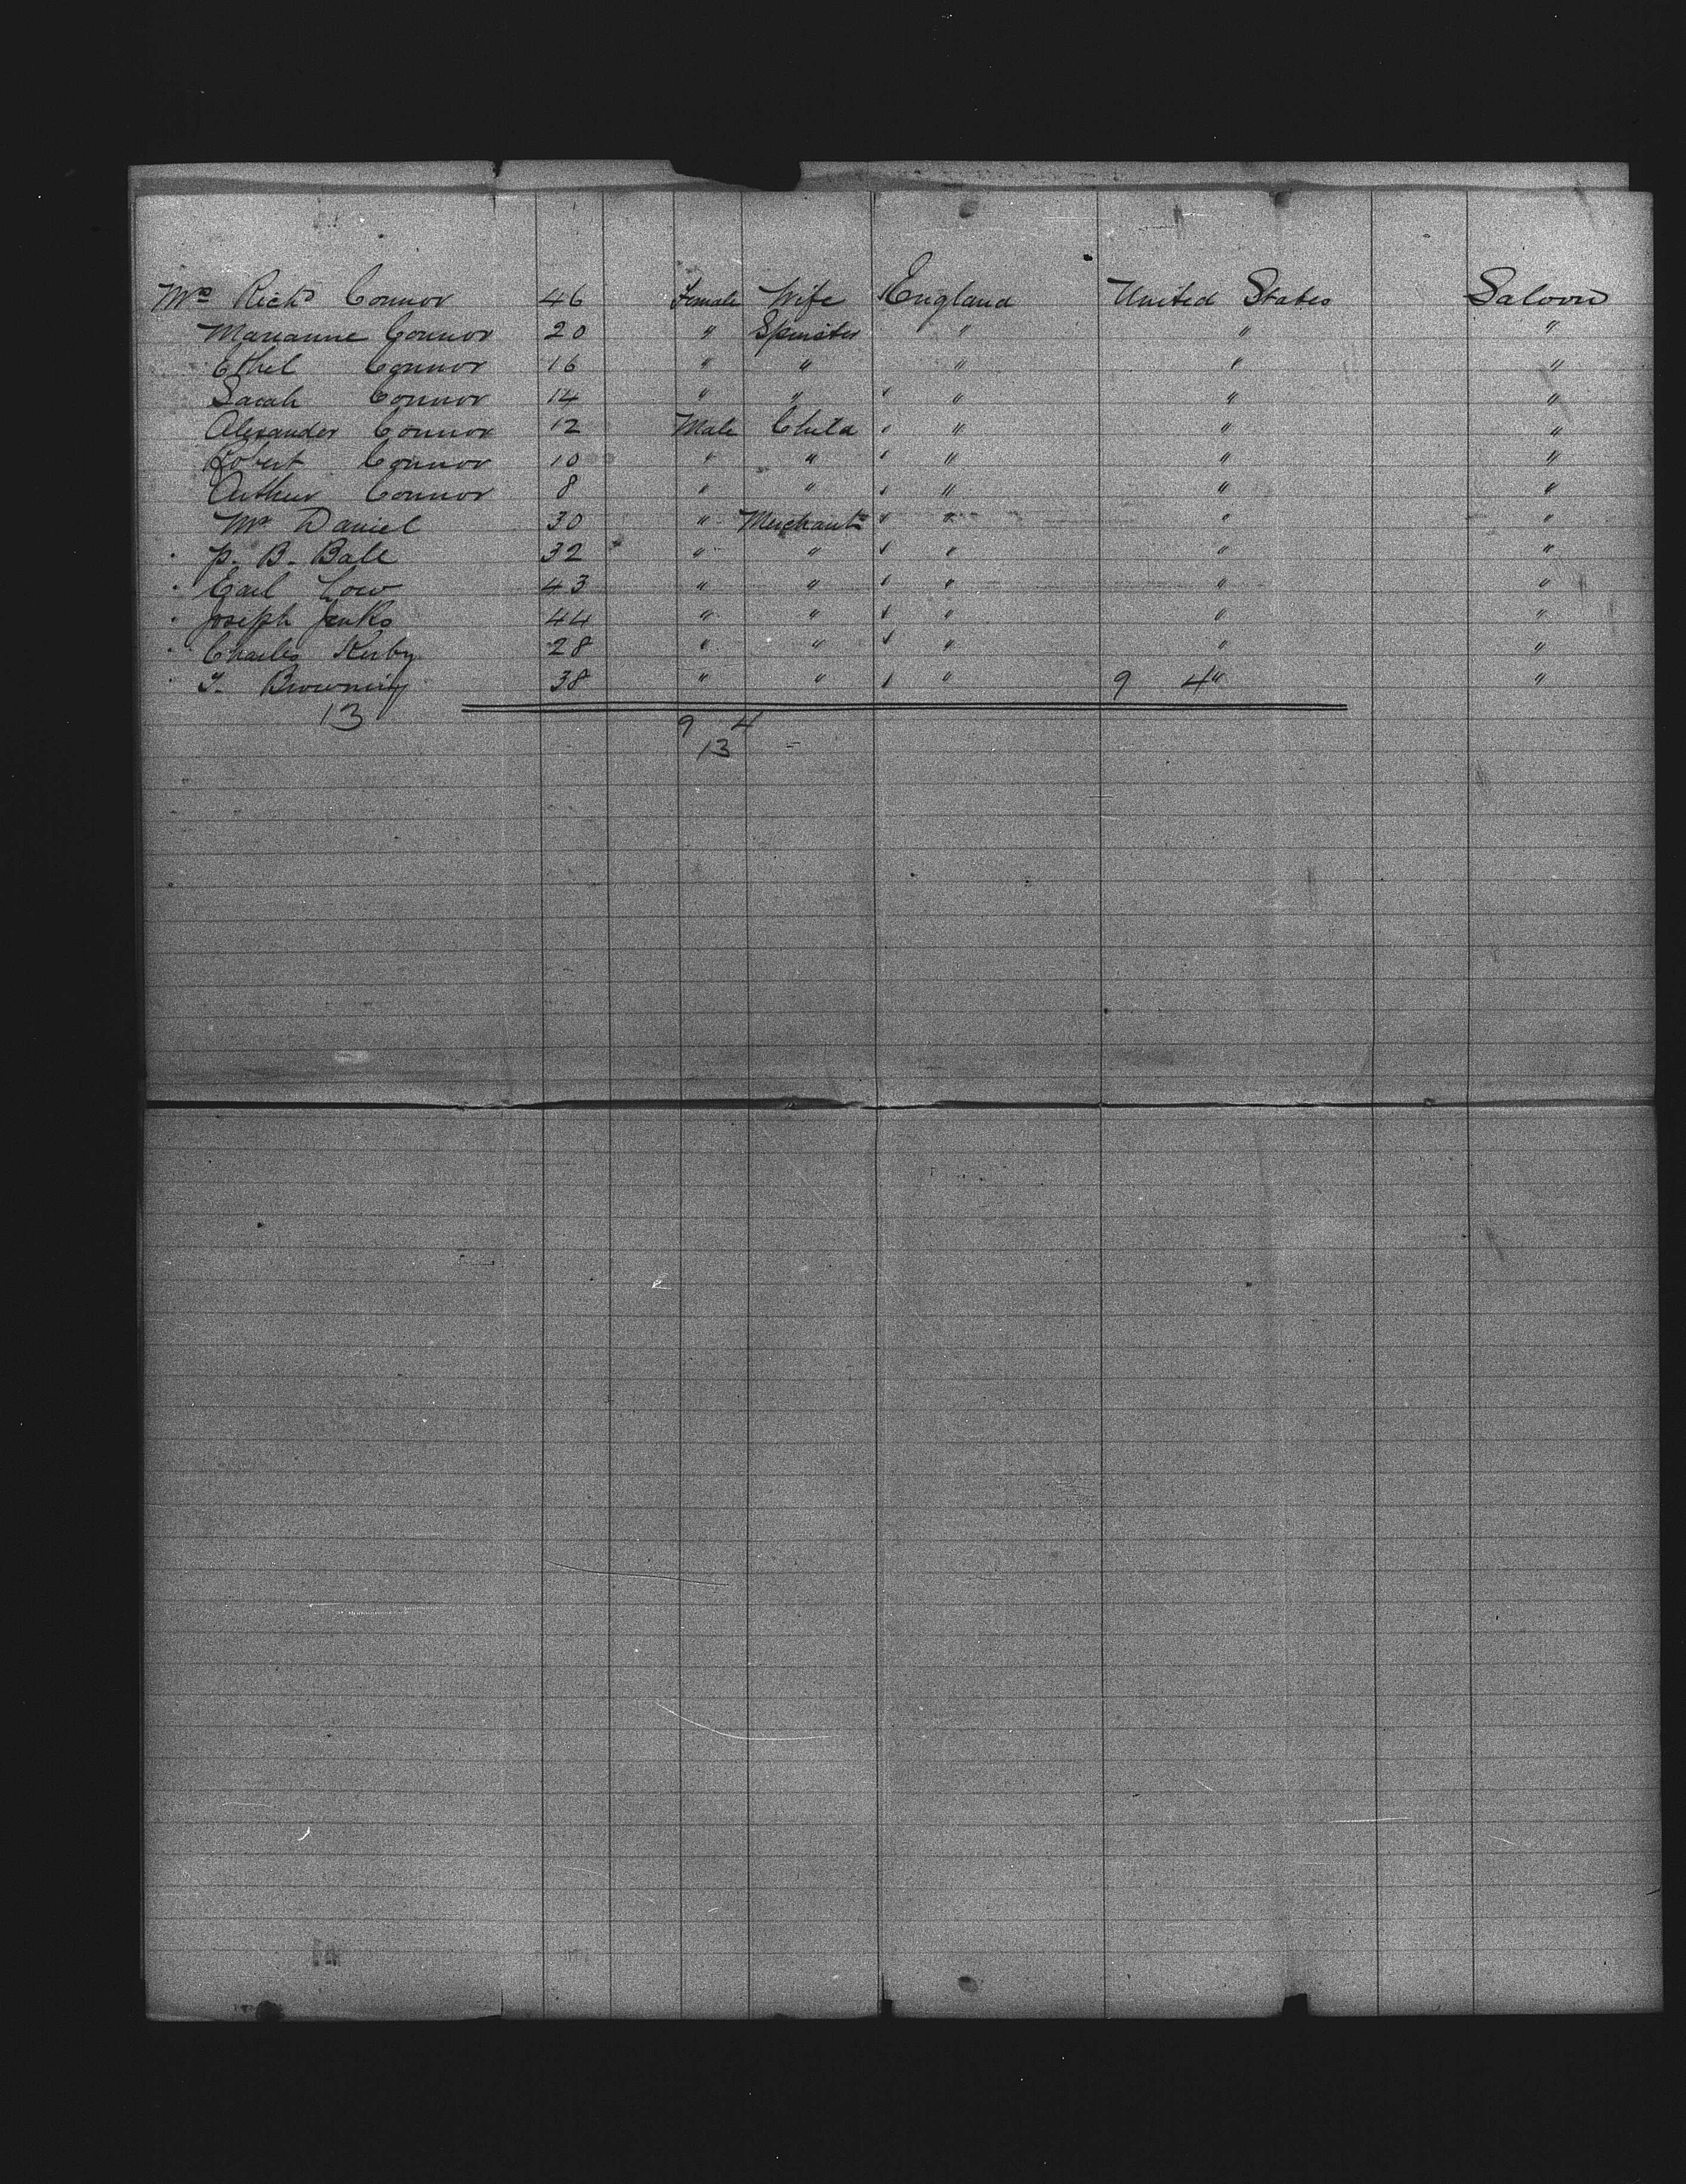 Mrs Richd Connor 46 Female Wife England United States Saloon
Marianne Connor 20 " Spinster " " "
Ethel Connor 16 " " " " "
Sarah Connor 14 " " " " "
Alexander Connor 12 Male Child " " "
Robert Connor 10 " " " " "
Arthur Connor 8 " " " " "
Mr Daniel 30 " Merchants " " "
" P. B. Ball 32 " " " " "
" Earl Low 43 " " " " "
" Joseph Jenks 44 " " " " "
" Charles Kirby 28 " " " " "
" T. Browning 38 " " " 9 4 " "
13 9 4
13